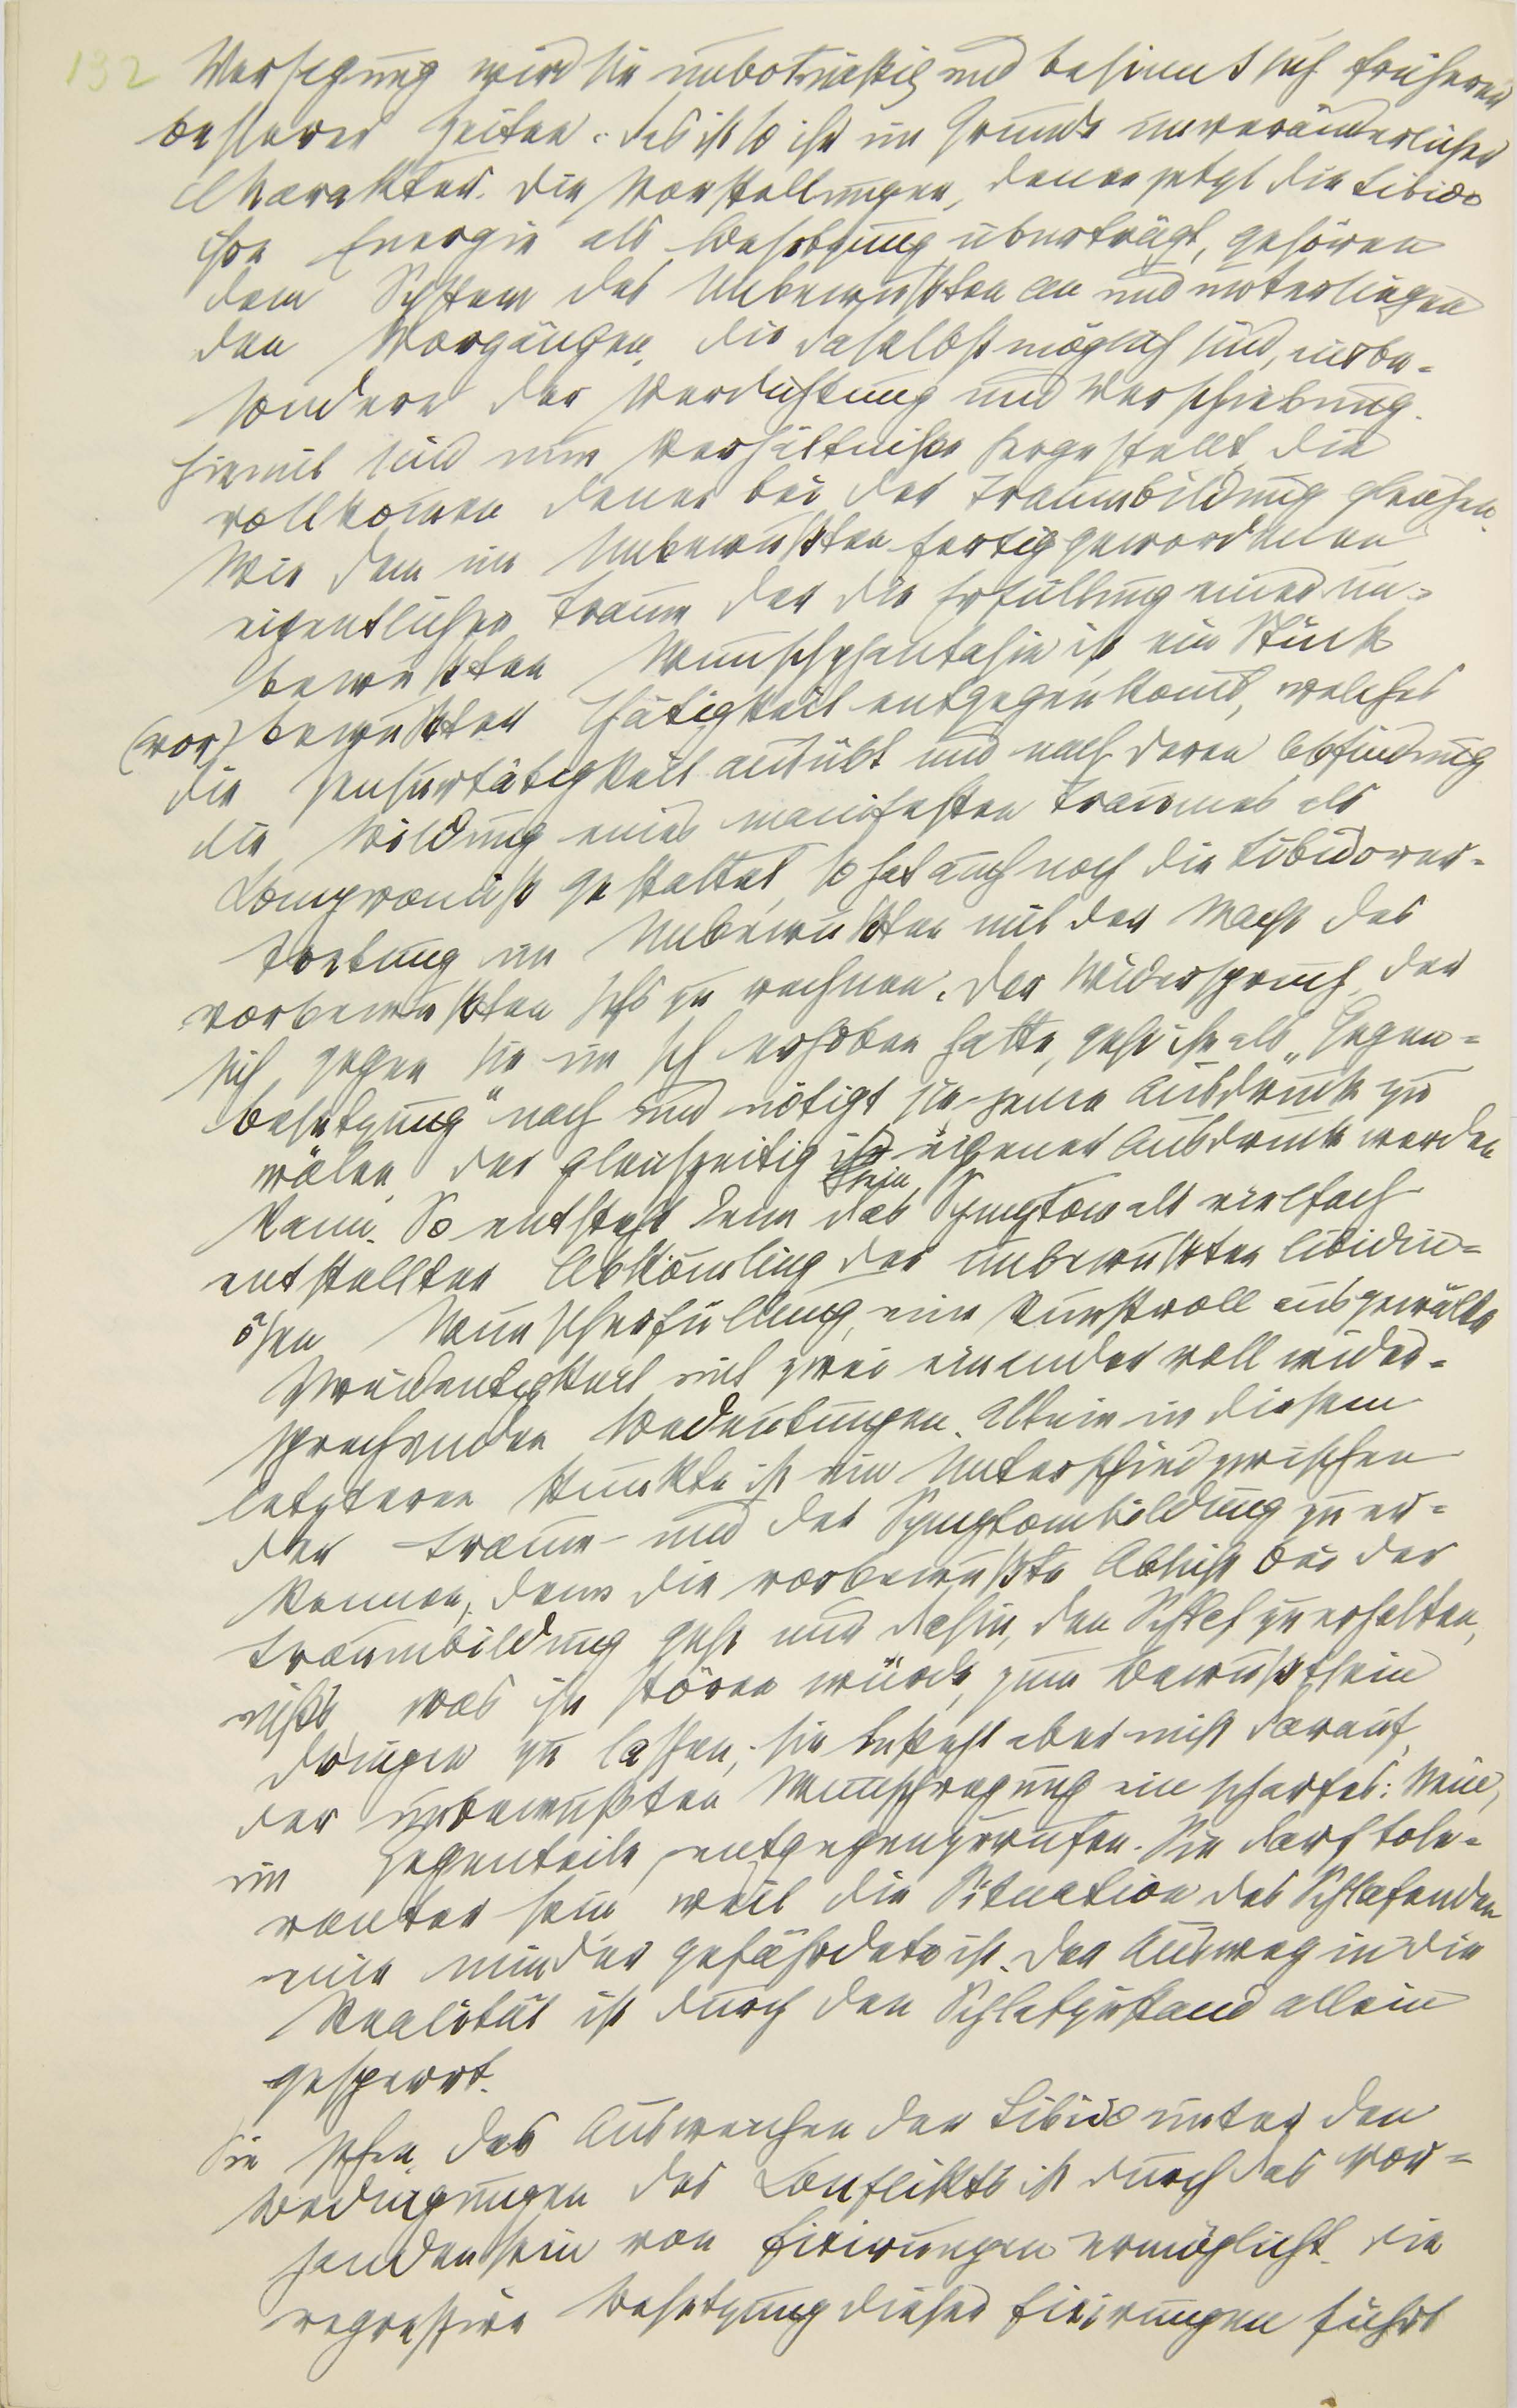 132
Versagung wird sie unbotmäßig und besinnt sich früherer
besserer Zeiten. Das ist so ihr im Grunde unveränderlicher
Charakter. Die Vorstellungen, denen jetzt die Libido
ihre Energie als Besetzung überträgt, gehören
dem System des Unbewußten an und unterliegen
den Vorgängen, die daselbst möglich sind, insbe-
sondere der Verdichtung und Verschiebung.
Hiemit sind nun Verhältniße hergestellt, die
vollkomen denen bei der Traumbildung gleichen.
Wie dem im Unbewußten fertig gewordenen
eigentlichen Traum der die Erfüllung einer un-
bewußten Wunschphantasie ist, ein Stück
(vor)bewußter Thätigkeit entgegenkomt, welches
die Zensurtätigkeit ausübt und nach deren Abfindung
die Bildung eines manifesten Traumes als
Kompromiß gestattet, so hat auch noch die Libidover-
tretung im Unbewußten mit der Macht des
vorbewußten Ichs zu rechnen. Der Widerspruch, der
sich gegen sie im Ich erhoben hatte, geht ihr als „Gegen-
besetzung" nach und nötigt sie jenen Ausdruck zu
wälen, der gleichzeitig sein eigener Ausdruck werden
kann. So entsteht denn das Symptom als vielfach
entstellter Abkömling der unbewußten libidin-
ösen Wunscherfüllung, eine kunstvoll ausgewälte
Zweideutigkeit mit zwei einander voll wider-
sprechenden Bedeutungen. Allein in diesem
letzteren Punkte ist ein Unterschied zwischen
der Traum- und der Symptombildung zu er-
kennen, denn die vorbewußte Absicht bei der
Traumbildung geht nur dahin, den Schlaf zu erhalten,
nichts, was ihn stören würde, zum Bewußtsein
dringen zu lassen; sie besteht aber nicht darauf,
der unbewußten Wunschregung ein scharfes: Nein,
im Gegenteile entgegenzurufen. Sie darf tole-
ranter sein, weil die Situation des Schlafenden
eine minder gefährdete ist. Der Ausweg in die
Realität ist durch den Schlafzustand allein
gesperrt.
Sie sehen, das Ausweichen der Libido unter den
Bedingungen des Konflikts ist durch das Vor-
handensein von Fixirungen ermöglicht. Die
regressive Besetzung dieser Fixirungen führt